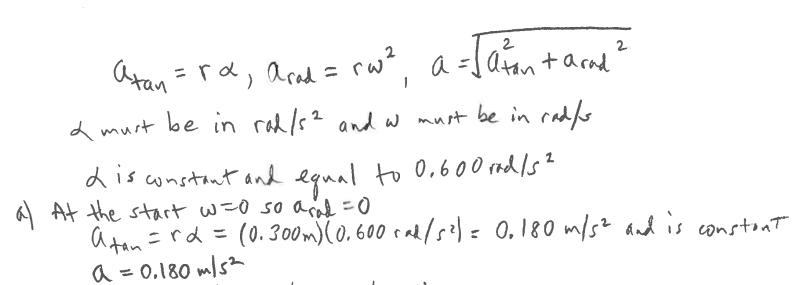 a_tan = rα, a_rad = rω², a = √(a_tan² + a_rad²)
α must be in rad/s² and ω must be in rad/s
α is constant and equal to 0.600 rad/s²
a) At the start ω=0 so a_rad = 0
a_tan = rα = (0.300m)(0.600 rad/s²) = 0.180 m/s² and is constant
a = 0.180 m/s²